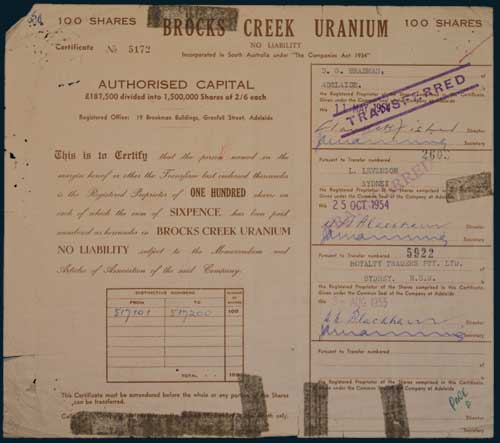 100 SHARES
BROCKS CREEK URANIUM
100 SHARES
Certificate № 5172
NO LIABILITY
Incorporated in South Australia under "The Companies Act 1934"
AUTHORISED CAPITAL
£187,500 divided into 1,500,000 Shares at 2/6 each
Registered Office: 19 Brookman Buildings, Grenfell Street, Adelaide
This is to Certify that the person named in the
margin hereof or other the Transferee last endorsed thereunder
is the Registered Proprietor of ONE HUNDRED shares on
each of which the sum of SIXPENCE has been paid
numbered as hereunder in BROCKS CREEK URANIUM
NO LIABILITY subject to the Memorandum and
Articles of Association of the said Company.
DISTINCTIVE NUMBERS
FROM TO
NUMBER OF SHARES
517101 517200 100
TOTAL
This Certificate must be surrendered before the whole or any portion of the Shares
can be transferred.
ADELAIDE.
the Registered Proprietor of the Shares comprised in this Certificate.
Given under the Common Seal of the Company at Adelaide
11 MAY 1954
TRANSFERRED
Director
Secretary
Pursuant to Transfer numbered
2603
L. LEVENSON
SYDNEY
the Registered Proprietor of the Shares comprised in this Certificate.
Given under the Common Seal of the Company at Adelaide
25 OCT 1954
Director
Secretary
Pursuant to Transfer numbered
5922
ROYALTY TRADERS PTY. LTD.
SYDNEY. N.S.W.
the Registered Proprietor of the Shares comprised in this Certificate.
Given under the Common Seal of the Company at Adelaide
AUG 1955
Director
Secretary
Pursuant to Transfer numbered
the Registered Proprietor of the Shares comprised in this Certificate.
Given under the Common Seal of the Company at Adelaide
Director
Secretary